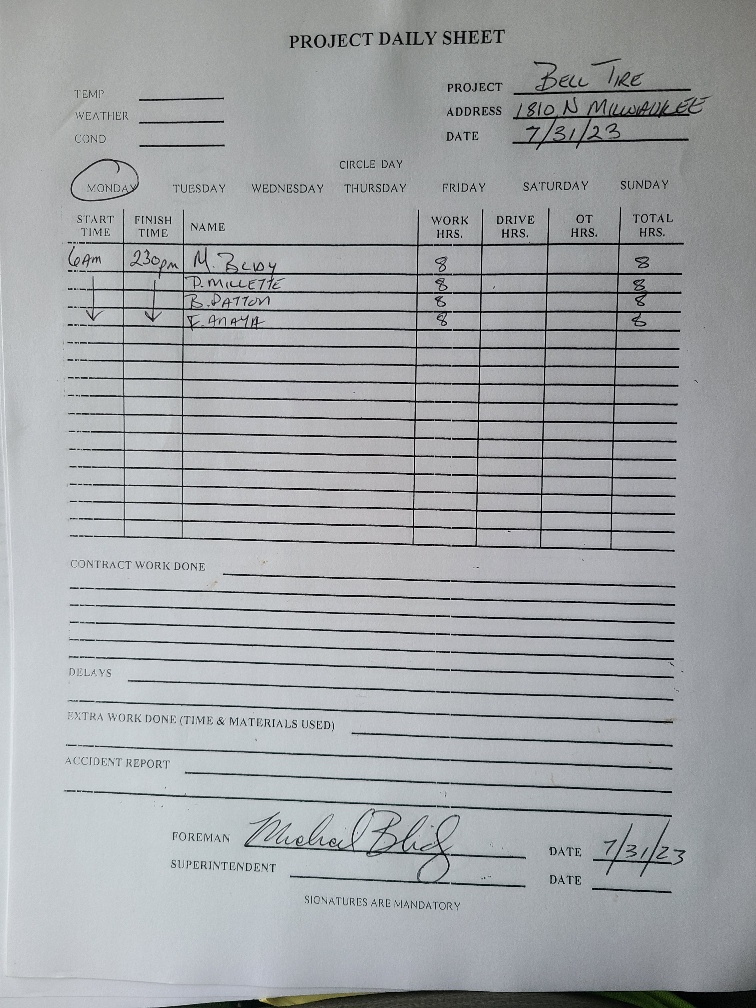 PROJECT DAILY SHEET
TEMP
WEATHER
COND
PROJECT BELL TIRE
ADDRESS 1810 N MILWAUKEE
DATE 7/31/23
CIRCLE DAY
MONDAY TUESDAY WEDNESDAY THURSDAY FRIDAY SATURDAY SUNDAY
START TIME FINISH TIME NAME WORK HRS. DRIVE HRS. OT HRS. TOTAL HRS.
6AM 230pm M. 8 8
D. MILLETTE 8 8
B. PATTON 8 8
E. ANAYA 8 8
CONTRACT WORK DONE
DELAYS
EXTRA WORK DONE (TIME & MATERIALS USED)
ACCIDENT REPORT
FOREMAN Michael DATE 7/31/23
SUPERINTENDENT DATE
SIGNATURES ARE MANDATORY